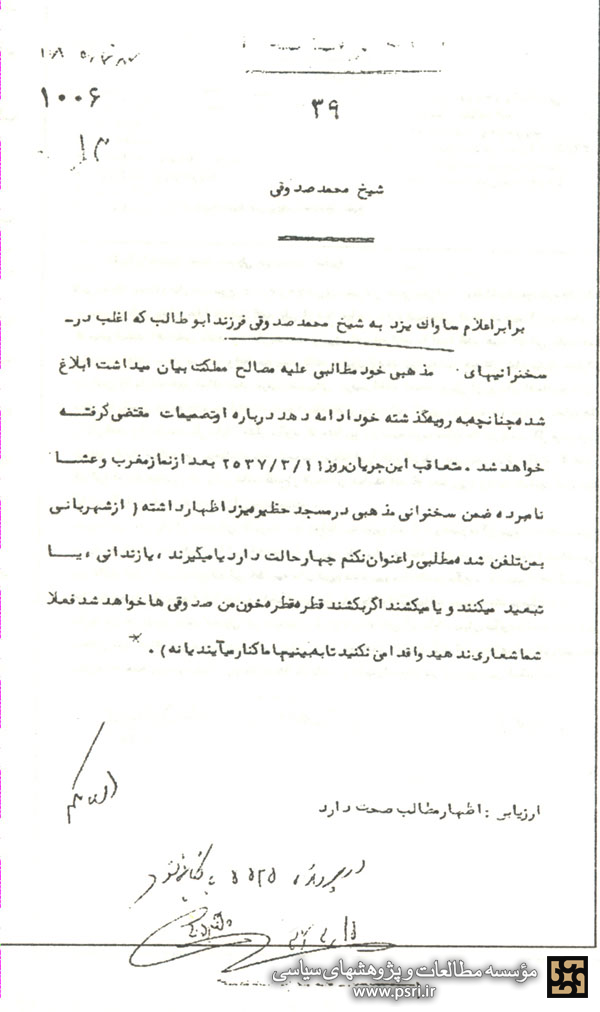 ۱۰۰۶
۳۹
شیخ محمد صدوقی
برابر اعلام ساواك یزد به شیخ محمد صدوقی فرزند ابوطالب كه اغلب در ـ
سخنرانیهای مذهبی خود مطالبی علیه مصالح مملکت بیان میداشت ابلاغ
شده چنانچه به رویه گذشته خود ادامه دهد درباره او تصمیمات مقتضی گرفته
خواهد شد . متعاقب این جریان روز ۲۵۳۷/۳/۱۱ بعد از نماز مغرب و عشا
نامبرده ضمن سخنرانی مذهبی در مسجد حظیره یزد اظهار داشته ( از شهربانی
بمن تلفن شده مطلبی را عنوان نکنم چهار حالت دارد یا میگیرند ، یا زندانی ، یا
تبعید میکنند و یا میکشند اگر بکشند قطره قطره خون من صدوقی ها خواهد شد فعلا
شما شعاری ندهید و اقدامی نکنید تا به بینیم با ما کنار میآیند یا نه ) .
ارزیابی : اظهار مطالب صحت دارد
مؤسسه مطالعات و پژوهشهای سیاسی
www.psri.ir